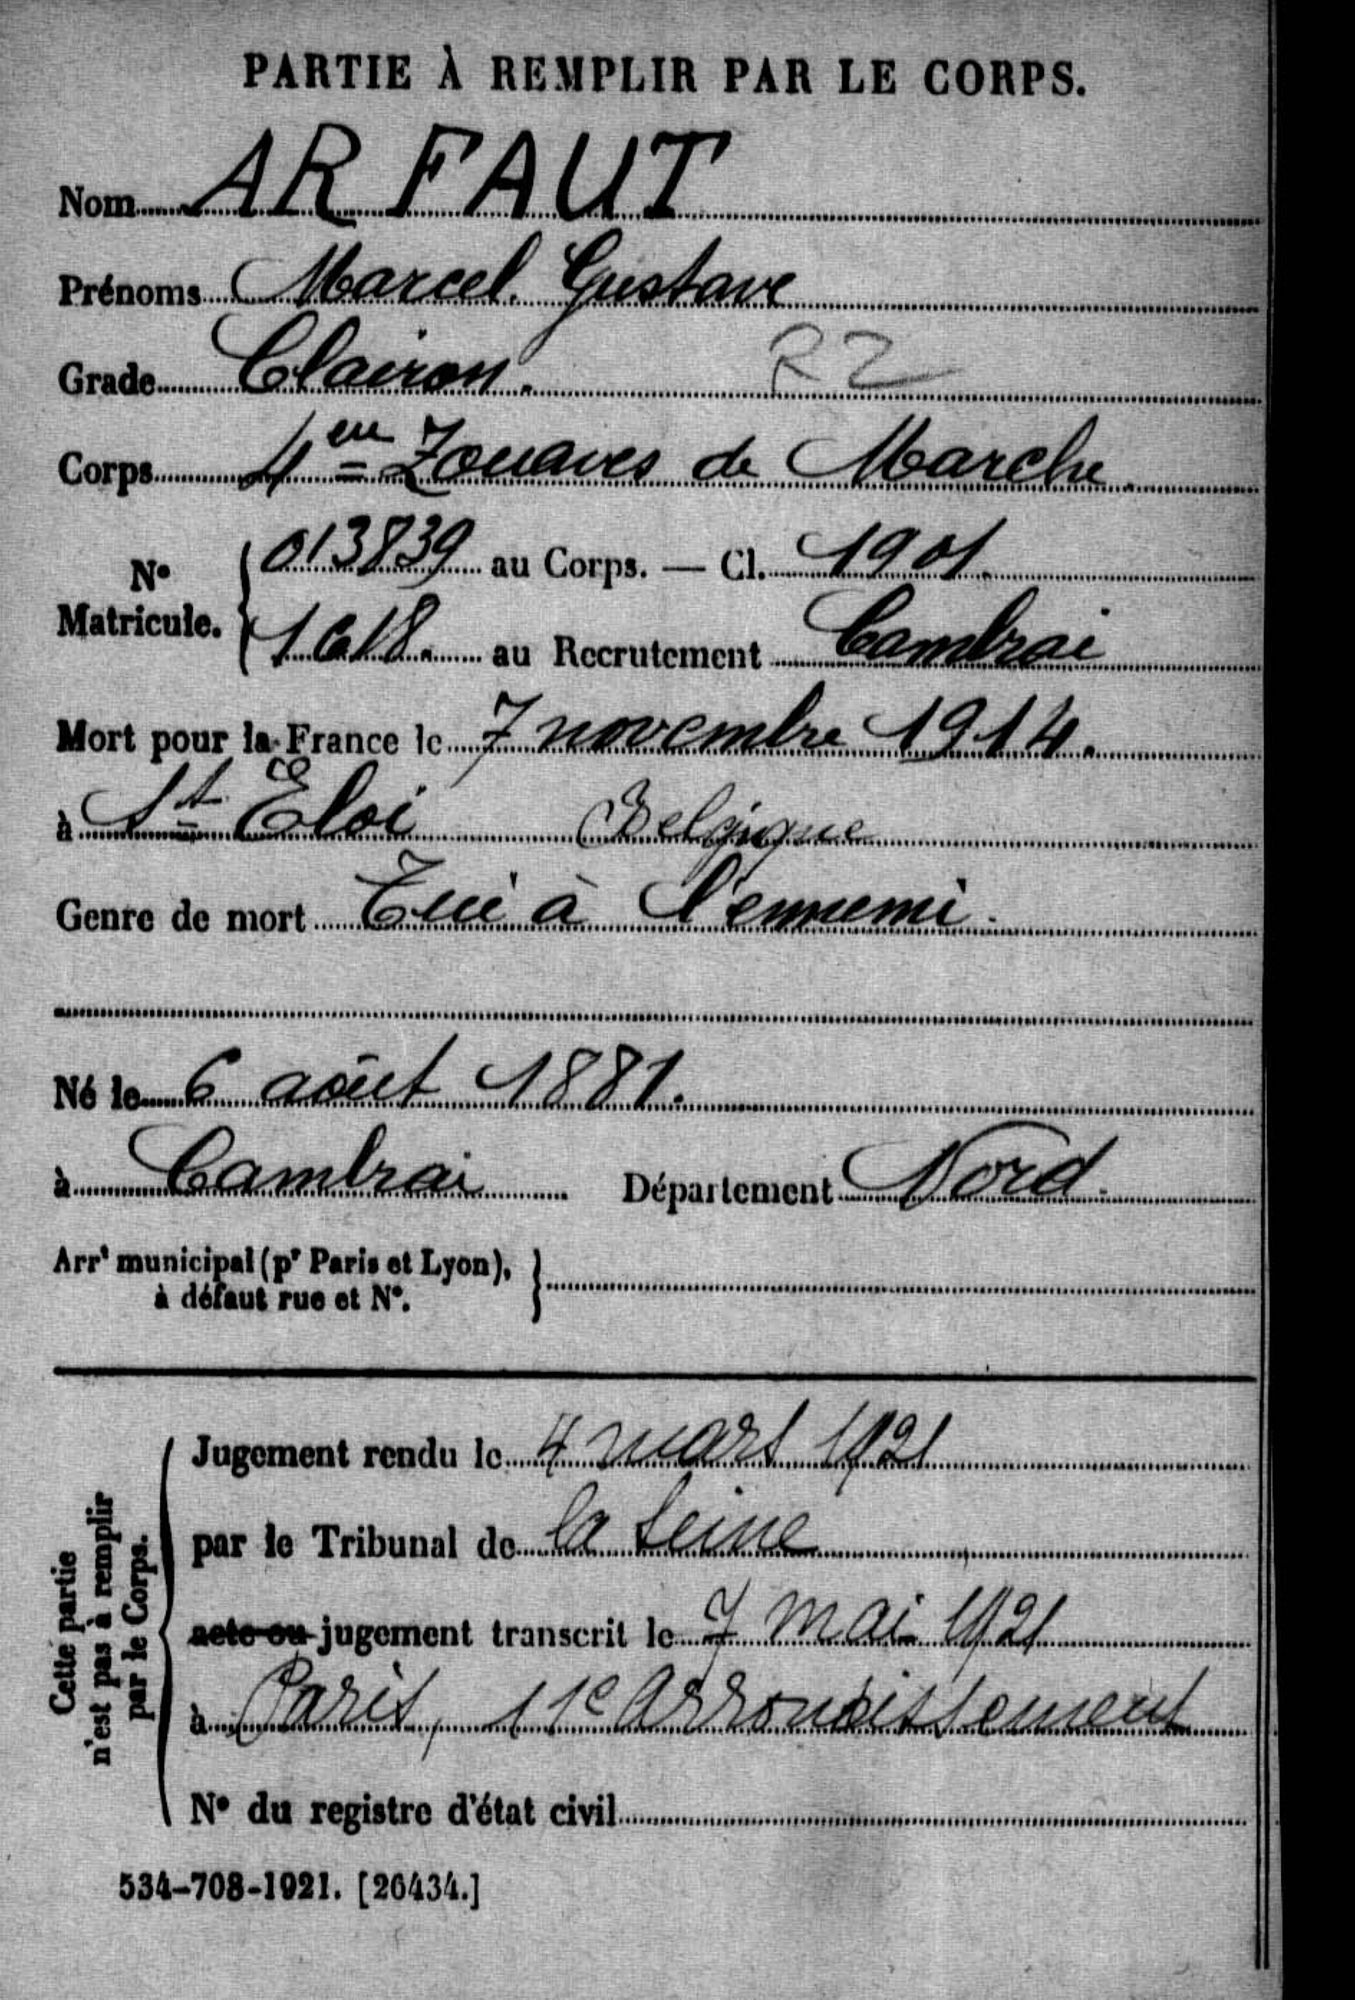 PARTIE À REMPLIR PAR LE CORPS.
Nom ARFAUT
Prénoms Marcel Gustave
Grade Clairon. R2
Corps 4eme Zouaves de Marche
N° Matricule. 013839 au Corps. — Cl. 1901
1618. au Recrutement Cambrai
Mort pour la France le 7 novembre 1914.
à St Eloi Belgique
Genre de mort Tué à l'ennemi.
Né le 6 août 1881.
à Cambrai Département Nord
Arrt municipal (pr Paris et Lyon),
à défaut rue et N°.
Cette partie
n'est pas à remplir
par le Corps.
Jugement rendu le 4 mars 1921
par le Tribunal de la Seine
acte ou jugement transcrit le 7 mai 1921
à Paris, 11e Arrondissement
N° du registre d'état civil
534-708-1921. [26434.]